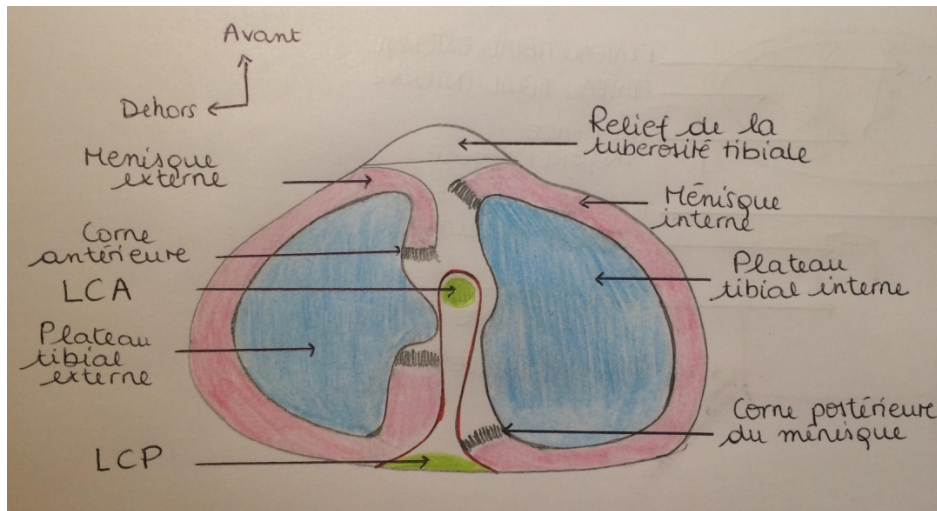 Avant
Dehors
Ménisque
externe
Corne
antérieure
LCA
Plateau
tibial
externe
LCP
Relief de la
tuberosité tibiale
Ménisque
interne
Plateau
tibial interne
Corne postérieure
du ménisque